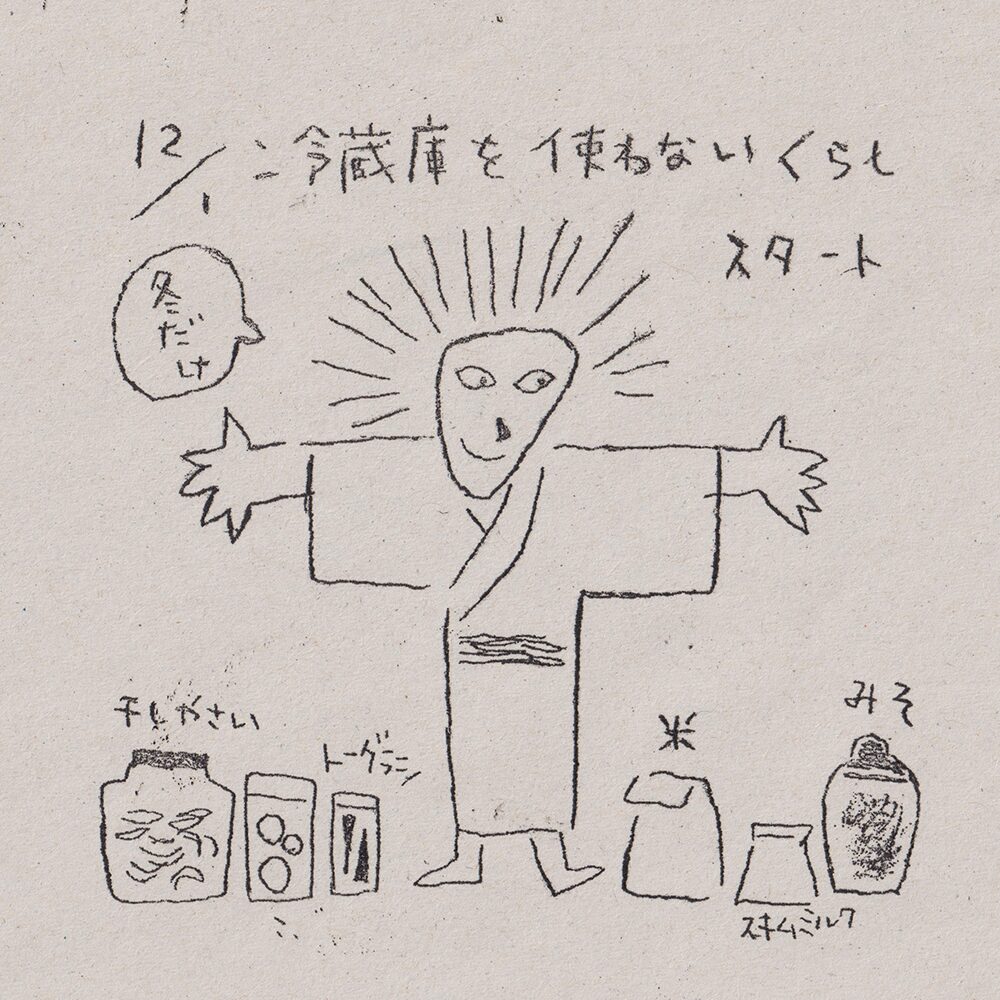 12/1 冷蔵庫を使わないくらし
スタート
冬だけ
干しやさい
トーガラシ
米
みそ
スキムミルク